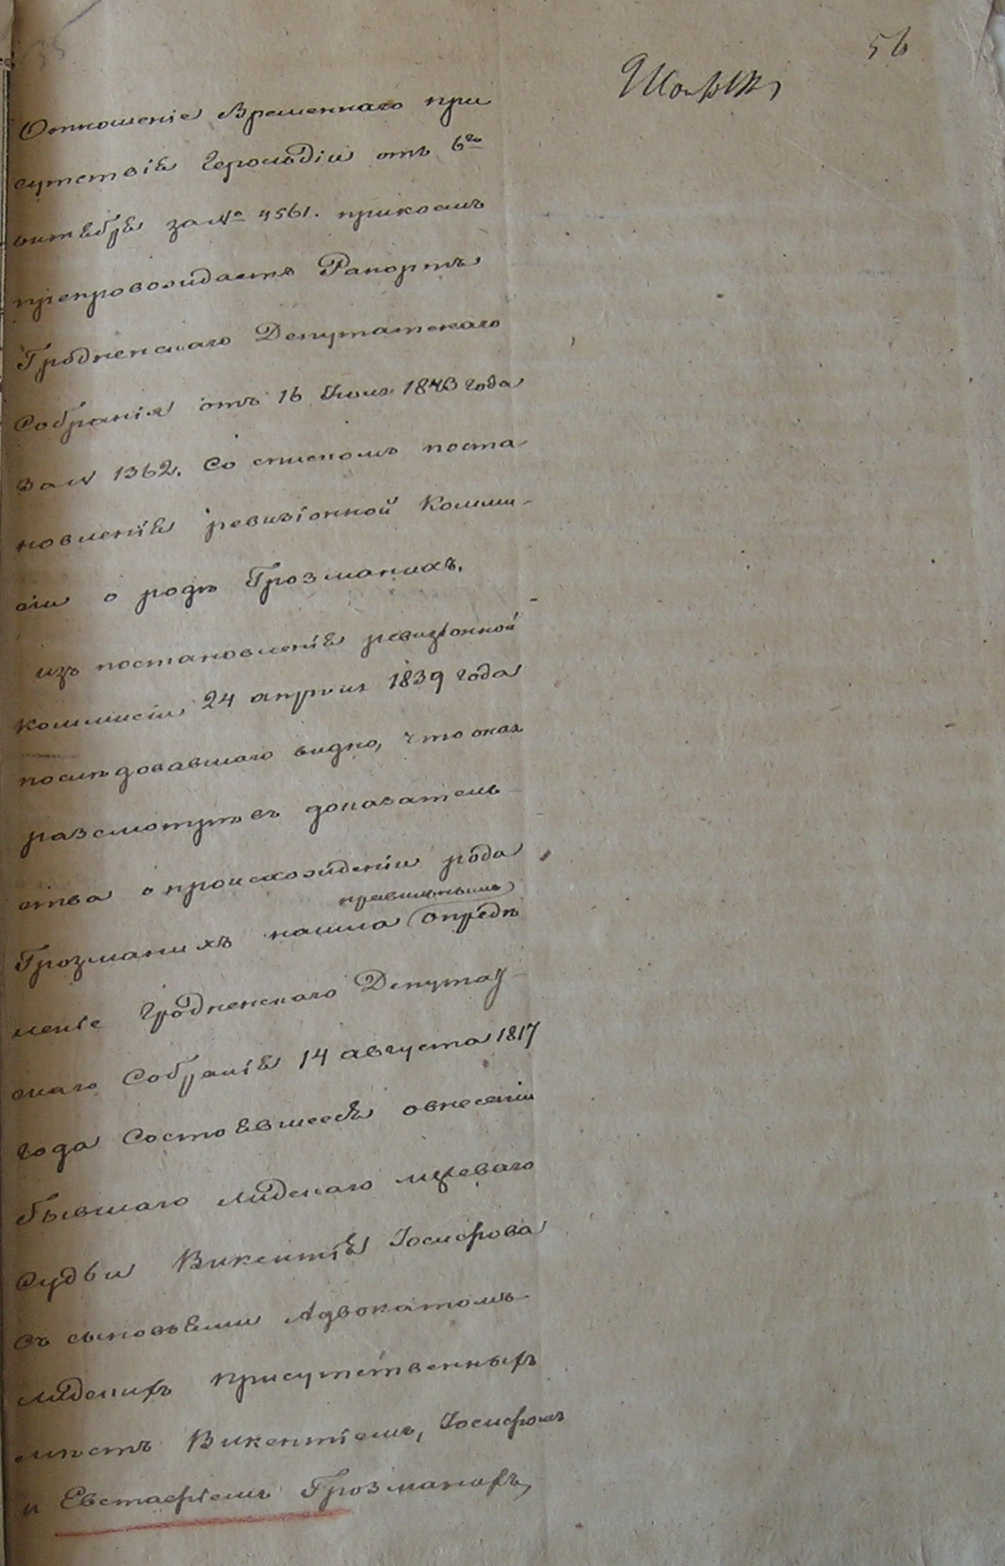 56
Отношеніе Временнаго при
сутствія Герольдіи отъ 6го
октября за № 4561. при коемъ
препровождается Рапортъ
Гродненскаго Депутатскаго
Собранія отъ 16 Іюля 1843 года
за № 1362. со спискомъ поста-
новленія ревизіонной Комми-
сіи о родѣ Грозманихъ.
изъ постановленія ревизіонной
коммисіи 24 апрѣля 1839 года
послѣдовавшаго видно, что оная
разсмотрѣвъ доказатель-
ства о происхожденіи рода
правильнымъ
Грозманихъ нашла опредѣ
леніе Гродненскаго Депутат-
скаго Собранія 14 августа 1817
года состоявшееся о внесеніи
бывшаго Лидскаго межеваго
Судьи Викентія Іосифова
съ сыновьями Адвокатомъ
Лидскихъ присутственныхъ
мѣстъ Викентіемъ, Іосифомъ
и Евстафіемъ Грозманихъ,